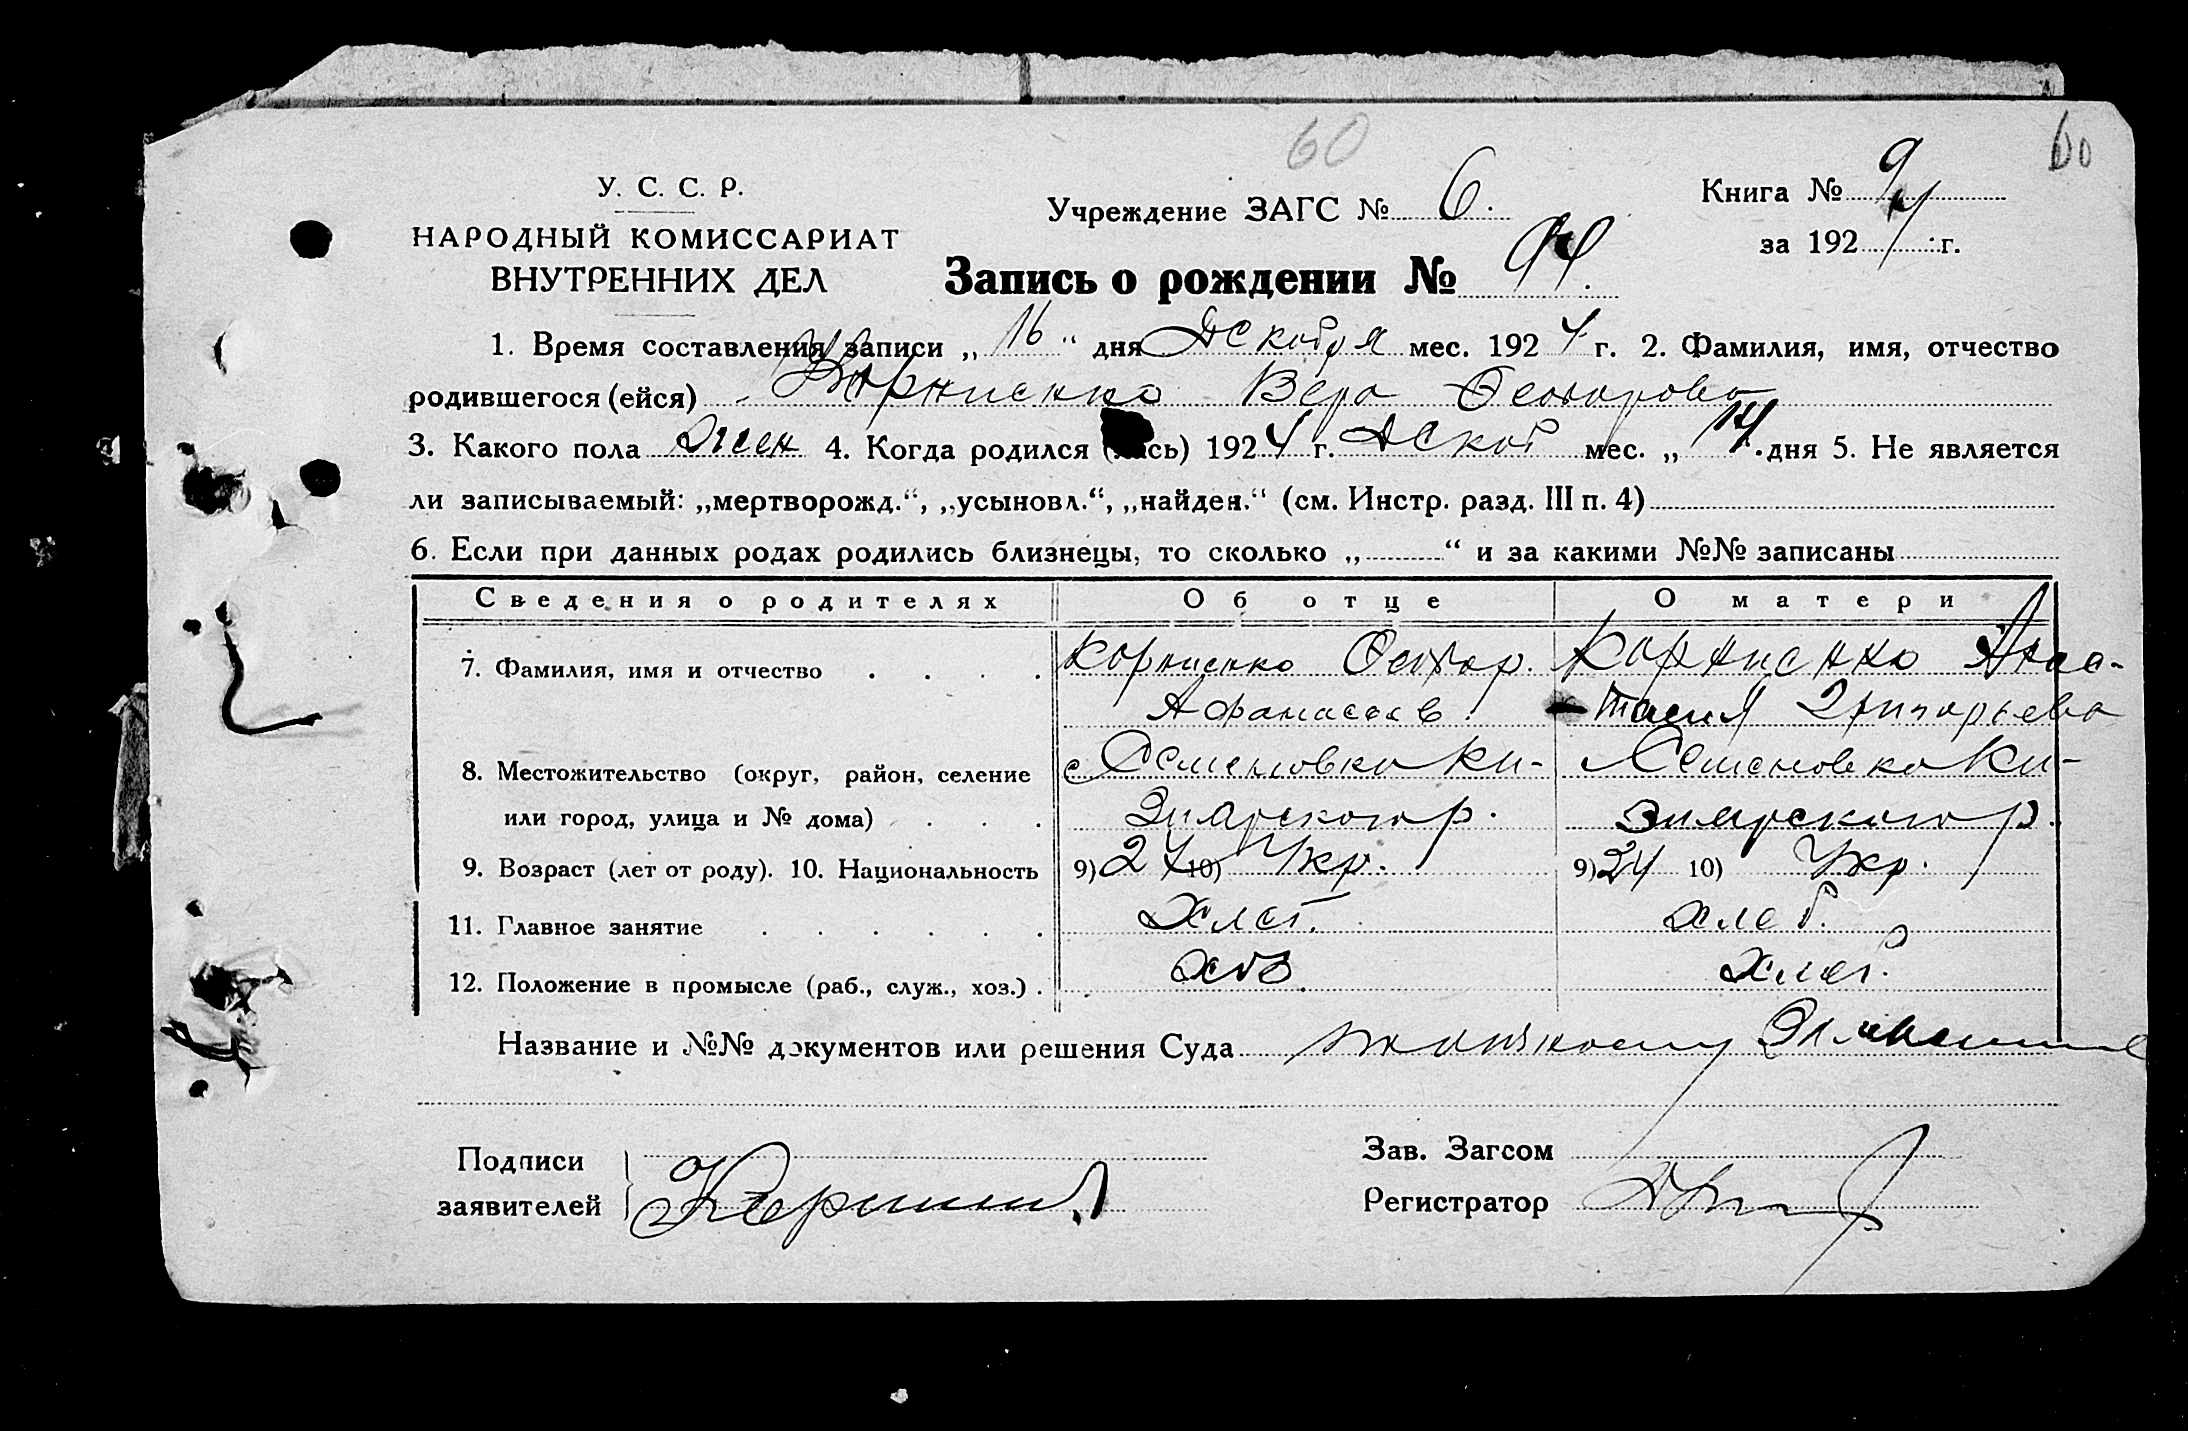 60
60
У. С. С. Р.
НАРОДНЫЙ КОМИССАРИАТ
ВНУТРЕННИХ ДЕЛ
Учреждение ЗАГС № 6.
Книга № 9
за 1924 г.
Запись о рождении № 94.
1. Время составления записи „16“ дня Декабря мес. 1924 г. 2. Фамилия, имя, отчество
родившегося (ейся) Корниенко Вера
3. Какого пола жен 4. Когда родился (лась) 1924 г. Декаб мес. „14.дня 5. Не является
ли записываемый: „мертворожд.“, „усыновл.“, „найден.“ (см. Инстр. разд. III п. 4)
6. Если при данных родах родились близнецы, то сколько „ “ и за какими №№ записаны
Сведения о родителях Об отце О матери
7. Фамилия, имя и отчество Корниенко Корниенко Анас-
Афанасьев тасия Григорьева
8. Местожительство (округ, район, селение с Семеновка Ки- Семеновка Ки-
или город, улица и № дома) зиярского р. зиярского р.
9. Возраст (лет от роду). 10. Национальность 9) 24 10) Укр. 9) 24 10) Укр.
11. Главное занятие Хлеб. хлеб.
12. Положение в промысле (раб., служ., хоз.) хоз. Хлеб.
Название и №№ документов или решения Суда
Подписи
заявителей
Зав. Загсом
Регистратор